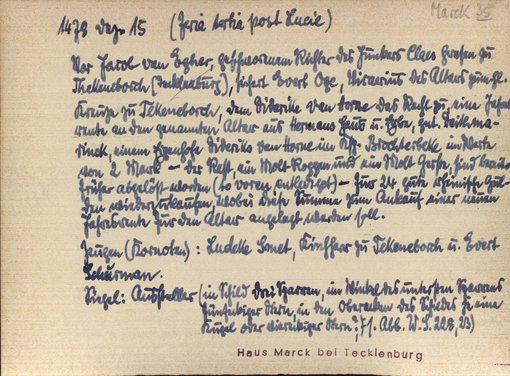 Marck 35
1478 Dez. 15 (feria tertia post Lucie)
Vor Jacob van Escher, geschworenem Richter des Junkers Claes Grafen zu
Thekeneborch (Tecklenburg), sichert Evert Oge, Vicarius des Altars zum hl.
Kreuze zu Tekeneborch, dem Diderike van Horne das Recht zu, eine Jahr-
rente an den genannten Altar aus Hermans Haus u. Erbe, gen.
einem Eigenhofe Diderikes van Horne im Ksp. Brochterbeke im Werte
von 2 Mark — der Rest, ein Molt Roggen und ein Molt Gerste, sind bereits
früher abgelöst worden (to voren entlediget) — für 24 gute rheinische Gul-
den wiederzukaufen, wobei diese Summe zum Ankauf einer neuen
Jahresrente für den Altar angelegt werden soll.
Zeugen (Kornoten): Ludeke Sonet, Kircher zu Tekeneborch u. Evert
Schurman.
Siegel: Aussteller (im Schild drei Sparren, im Winkel des untersten Sparrens
fünfeckiger Stern, in den Oberecken des Schildes je eine
Kugel oder viereckiger Stern?, Abb. W. S. 228, 23)
Haus Marck bei Tecklenburg